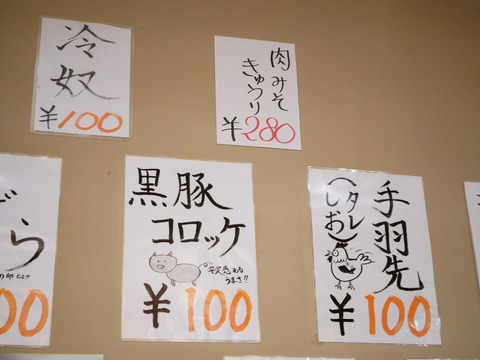 冷奴
¥100
肉みそ
きゅうり
¥280
ら
00
黒豚
コロッケ
うまさ!!
¥100
手羽先
(タレ
しお)
¥100